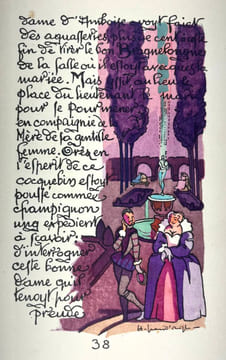 dame d'Amboise avoyt faict
des aquassettes plus de cent à ceste
fin de tirer le bon Braguelongne
de la salle où il estoyt avecques sa
mariée. Mais issit au lieu et
place du lieutenant le marié
pour se pourmener
en compaignie de la
Mère de sa gentille
femme. Ores en
l'esperit de ce
cocquebin estoyt
poulsé comme ung
champignon
ung expédient
à sçavoir
d'interroguer
ceste bonne
dame qu'il
tenoyt pour
preude
38